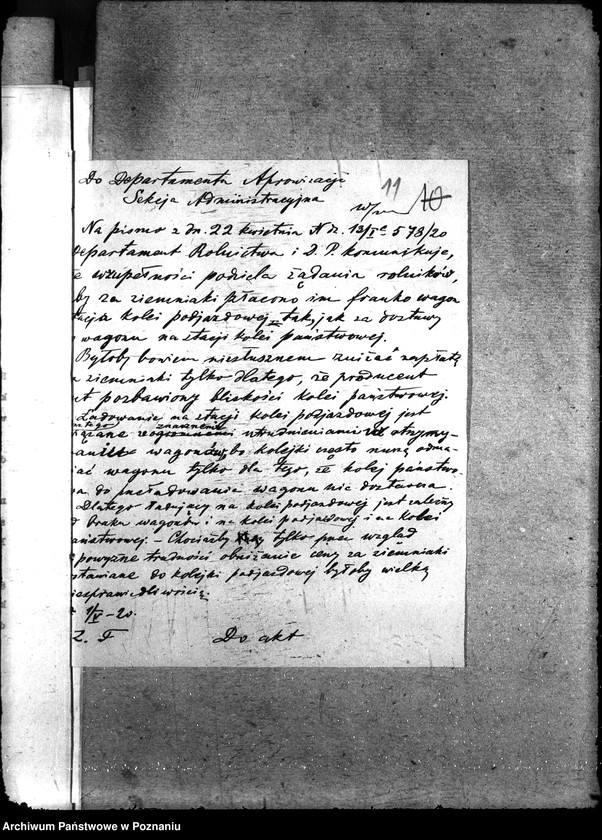 Do Departamentu Aprowizacji
Sekcja Administracyjna
11
10
Na pismo z dn. 22 kwietnia N dz. 13/I a 578/20
Departament Rolnictwa i D. P. komunikuje,
że wzupełności podziela żądania rolników,
by za ziemniaki płacono im franko wagon
stacja kolei podjazdowej tak, jak za dostawy
wagonu na stacji kolei państwowej.
Byłoby bowiem niesłusznem zniżać zapłatę
a ziemniaki tylko dlatego, że producent
st pozbawiony bliskości kolei państwowej.
Ładowanie na stacji kolei podjazdowej jest
znacznemi
ązane utrudnieniami otrzymy-
wagonów, bo kolejki często muszą odma-
iać wagonu tylko dla tego, że kolej państwo-
a do przeładowania wagonu nie dostarcza.
Dlatego ładujący na kolei podjazdowej jest zależny
d braku wagonów i na kolei podjazdowej i na kolei
aństwowej. – Chociażby tylko przez wzgląd
powyższe trudności obniżanie ceny za ziemniaki
stawiane do kolejki podjazdowej byłoby wielką
iesprawiedliwością.
1/V – 20.
Z. F Do akt
Archiwum Państwowe w Poznaniu